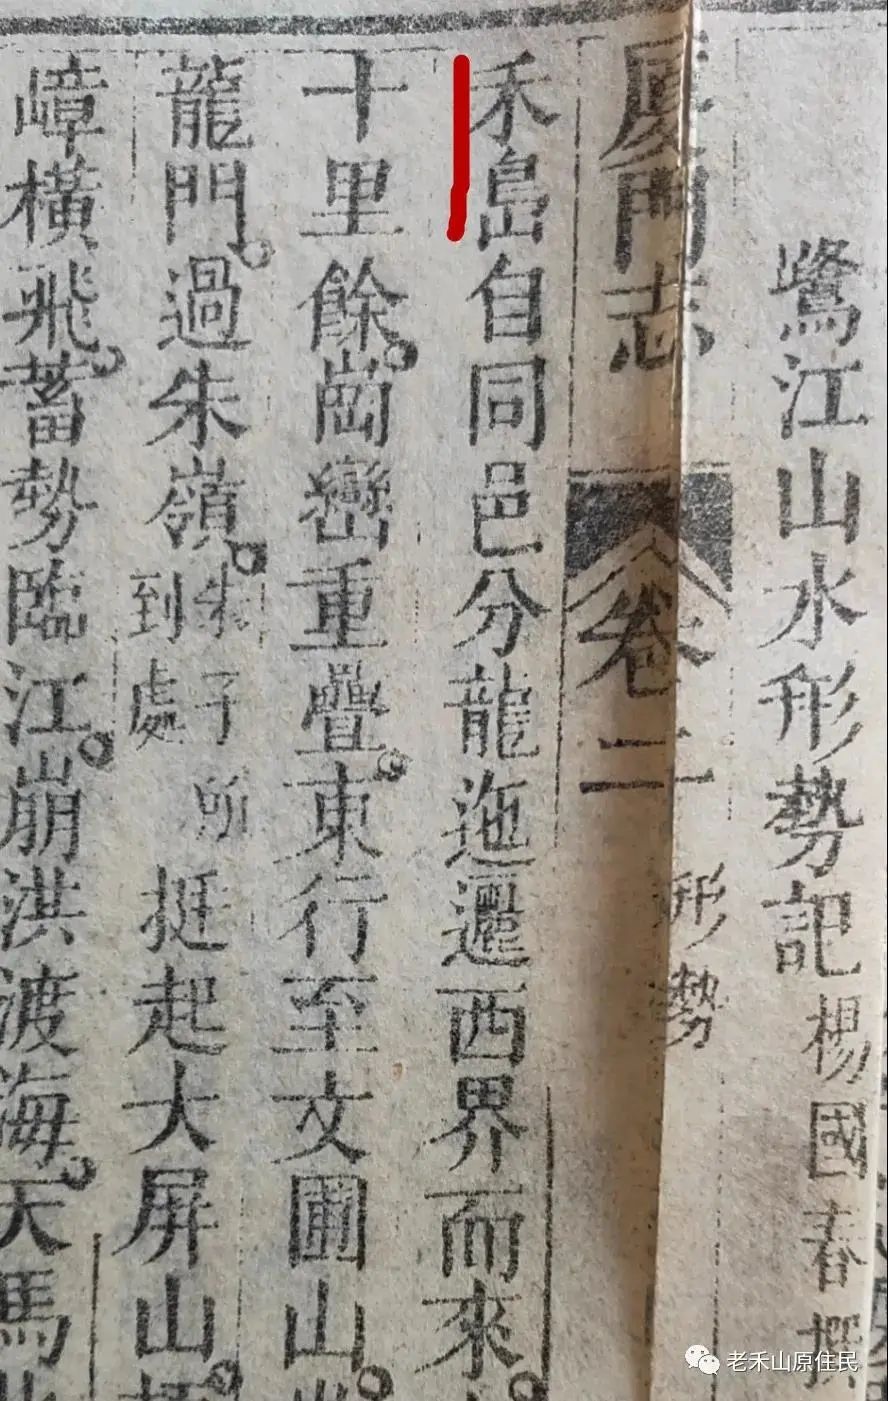 鷺江山水形勢記 楊國春撰
廈門志 卷二 形勢
禾島自同邑分龍迤邐西界而來
十里餘崗巒重疊東行至文圃山
龍門過朱嶺朱子所到處挺起大屏山
嶂橫飛蓄勢臨江崩洪渡海天馬
老禾山原住民